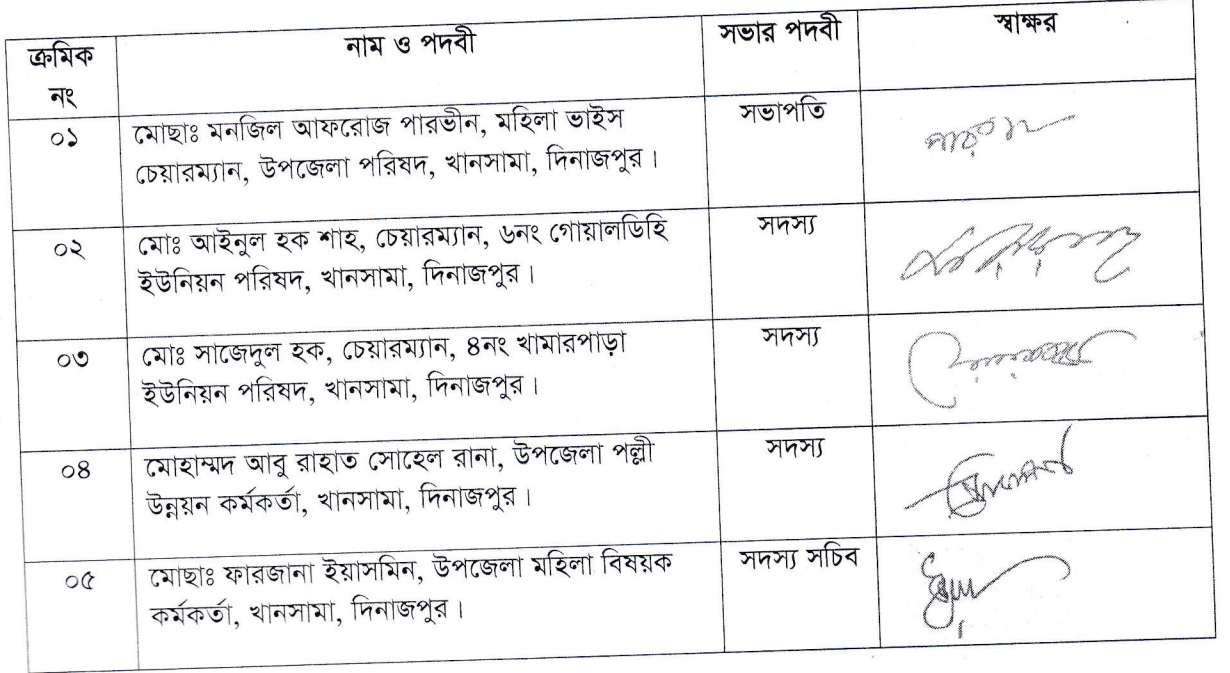 ক্রমিক নং নাম ও পদবী সভার পদবী স্বাক্ষর
০১ মোছাঃ মনজিল আফরোজ পারভীন, মহিলা ভাইস সভাপতি
চেয়ারম্যান, উপজেলা পরিষদ, খানসামা, দিনাজপুর।
০২ মোঃ আইনুল হক শাহ, চেয়ারম্যান, ৬নং গোয়ালডিহি সদস্য
ইউনিয়ন পরিষদ, খানসামা, দিনাজপুর।
০৩ মোঃ সাজেদুল হক, চেয়ারম্যান, ৪নং খামারপাড়া সদস্য
ইউনিয়ন পরিষদ, খানসামা, দিনাজপুর।
০৪ মোহাম্মদ আবু রাহাত সোহেল রানা, উপজেলা পল্লী সদস্য
উন্নয়ন কর্মকর্তা, খানসামা, দিনাজপুর।
০৫ মোছাঃ ফারজানা ইয়াসমিন, উপজেলা মহিলা বিষয়ক সদস্য সচিব
কর্মকর্তা, খানসামা, দিনাজপুর।